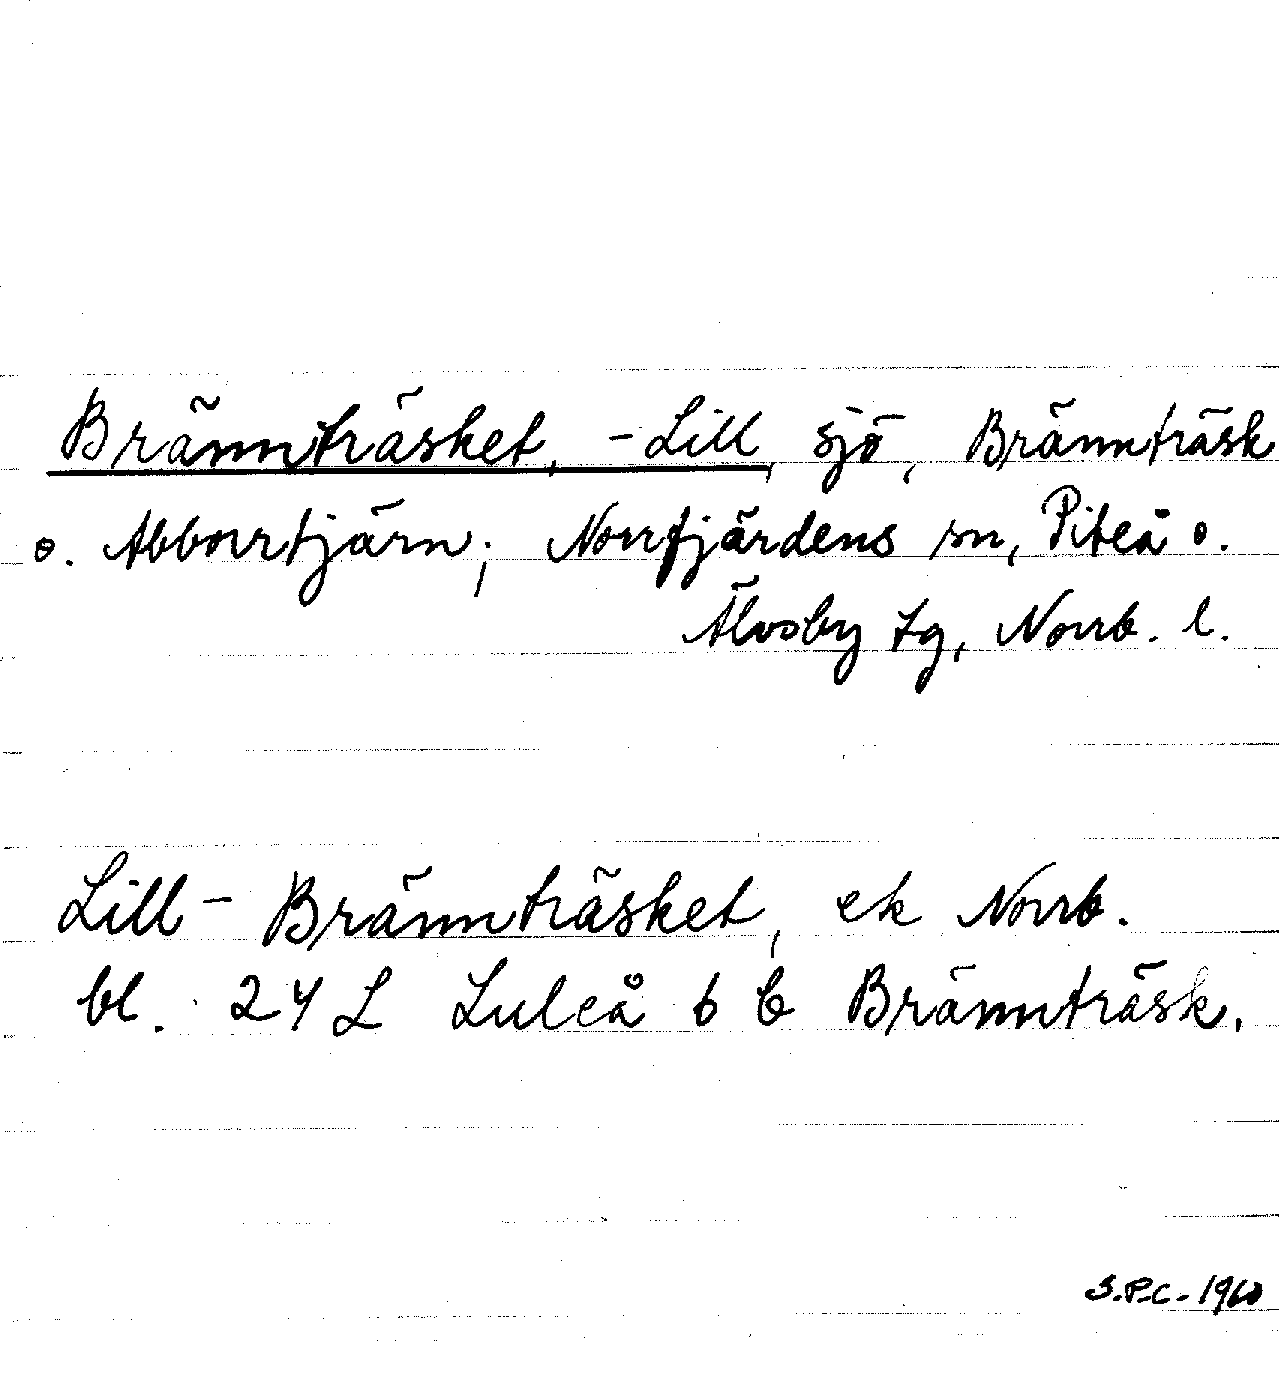 Brännträsket, -Lill, sjö, Brännträsk
o. Abborrtjärn; Norrfjärdens sn, Piteå o.
Älvsby tg, Norrb. l.
Lill-Brännträsket, ek Norrb.
bl. 24 L Luleå 6 b Brännträsk.
S.P.C. 1960